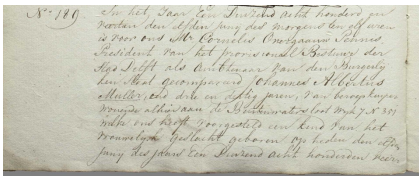 No. 189
In het Jaar Een Duizend Acht honderd en
veertien den elfden Juny des morgens ten elf uren
is voor ons Mr. Cornelis Overgaauw Pennis,
President van het provisioneel Bestuur der
Stad Delft als Ambtenaar van den Burgerly
ken Staat gecompareerd Johannes Albertus
Muller, oud drie en jaren, van beroep
wonende alhier aan de Buitenwatersloot Wyk 7 No 351
welk ons heeft voorgesteld een kind van het
vrouwelyk geslacht geboren op heden den
Juny des jaars Een Duizend acht honderd en veer